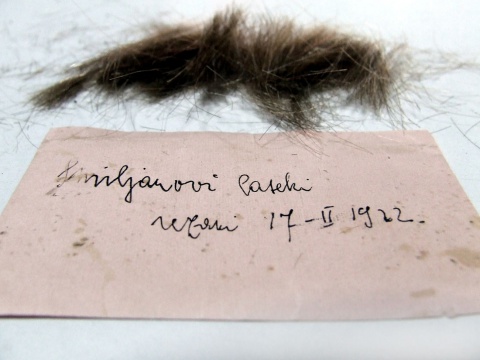 Smiljanovi laseki
rezani 17-II 1922.